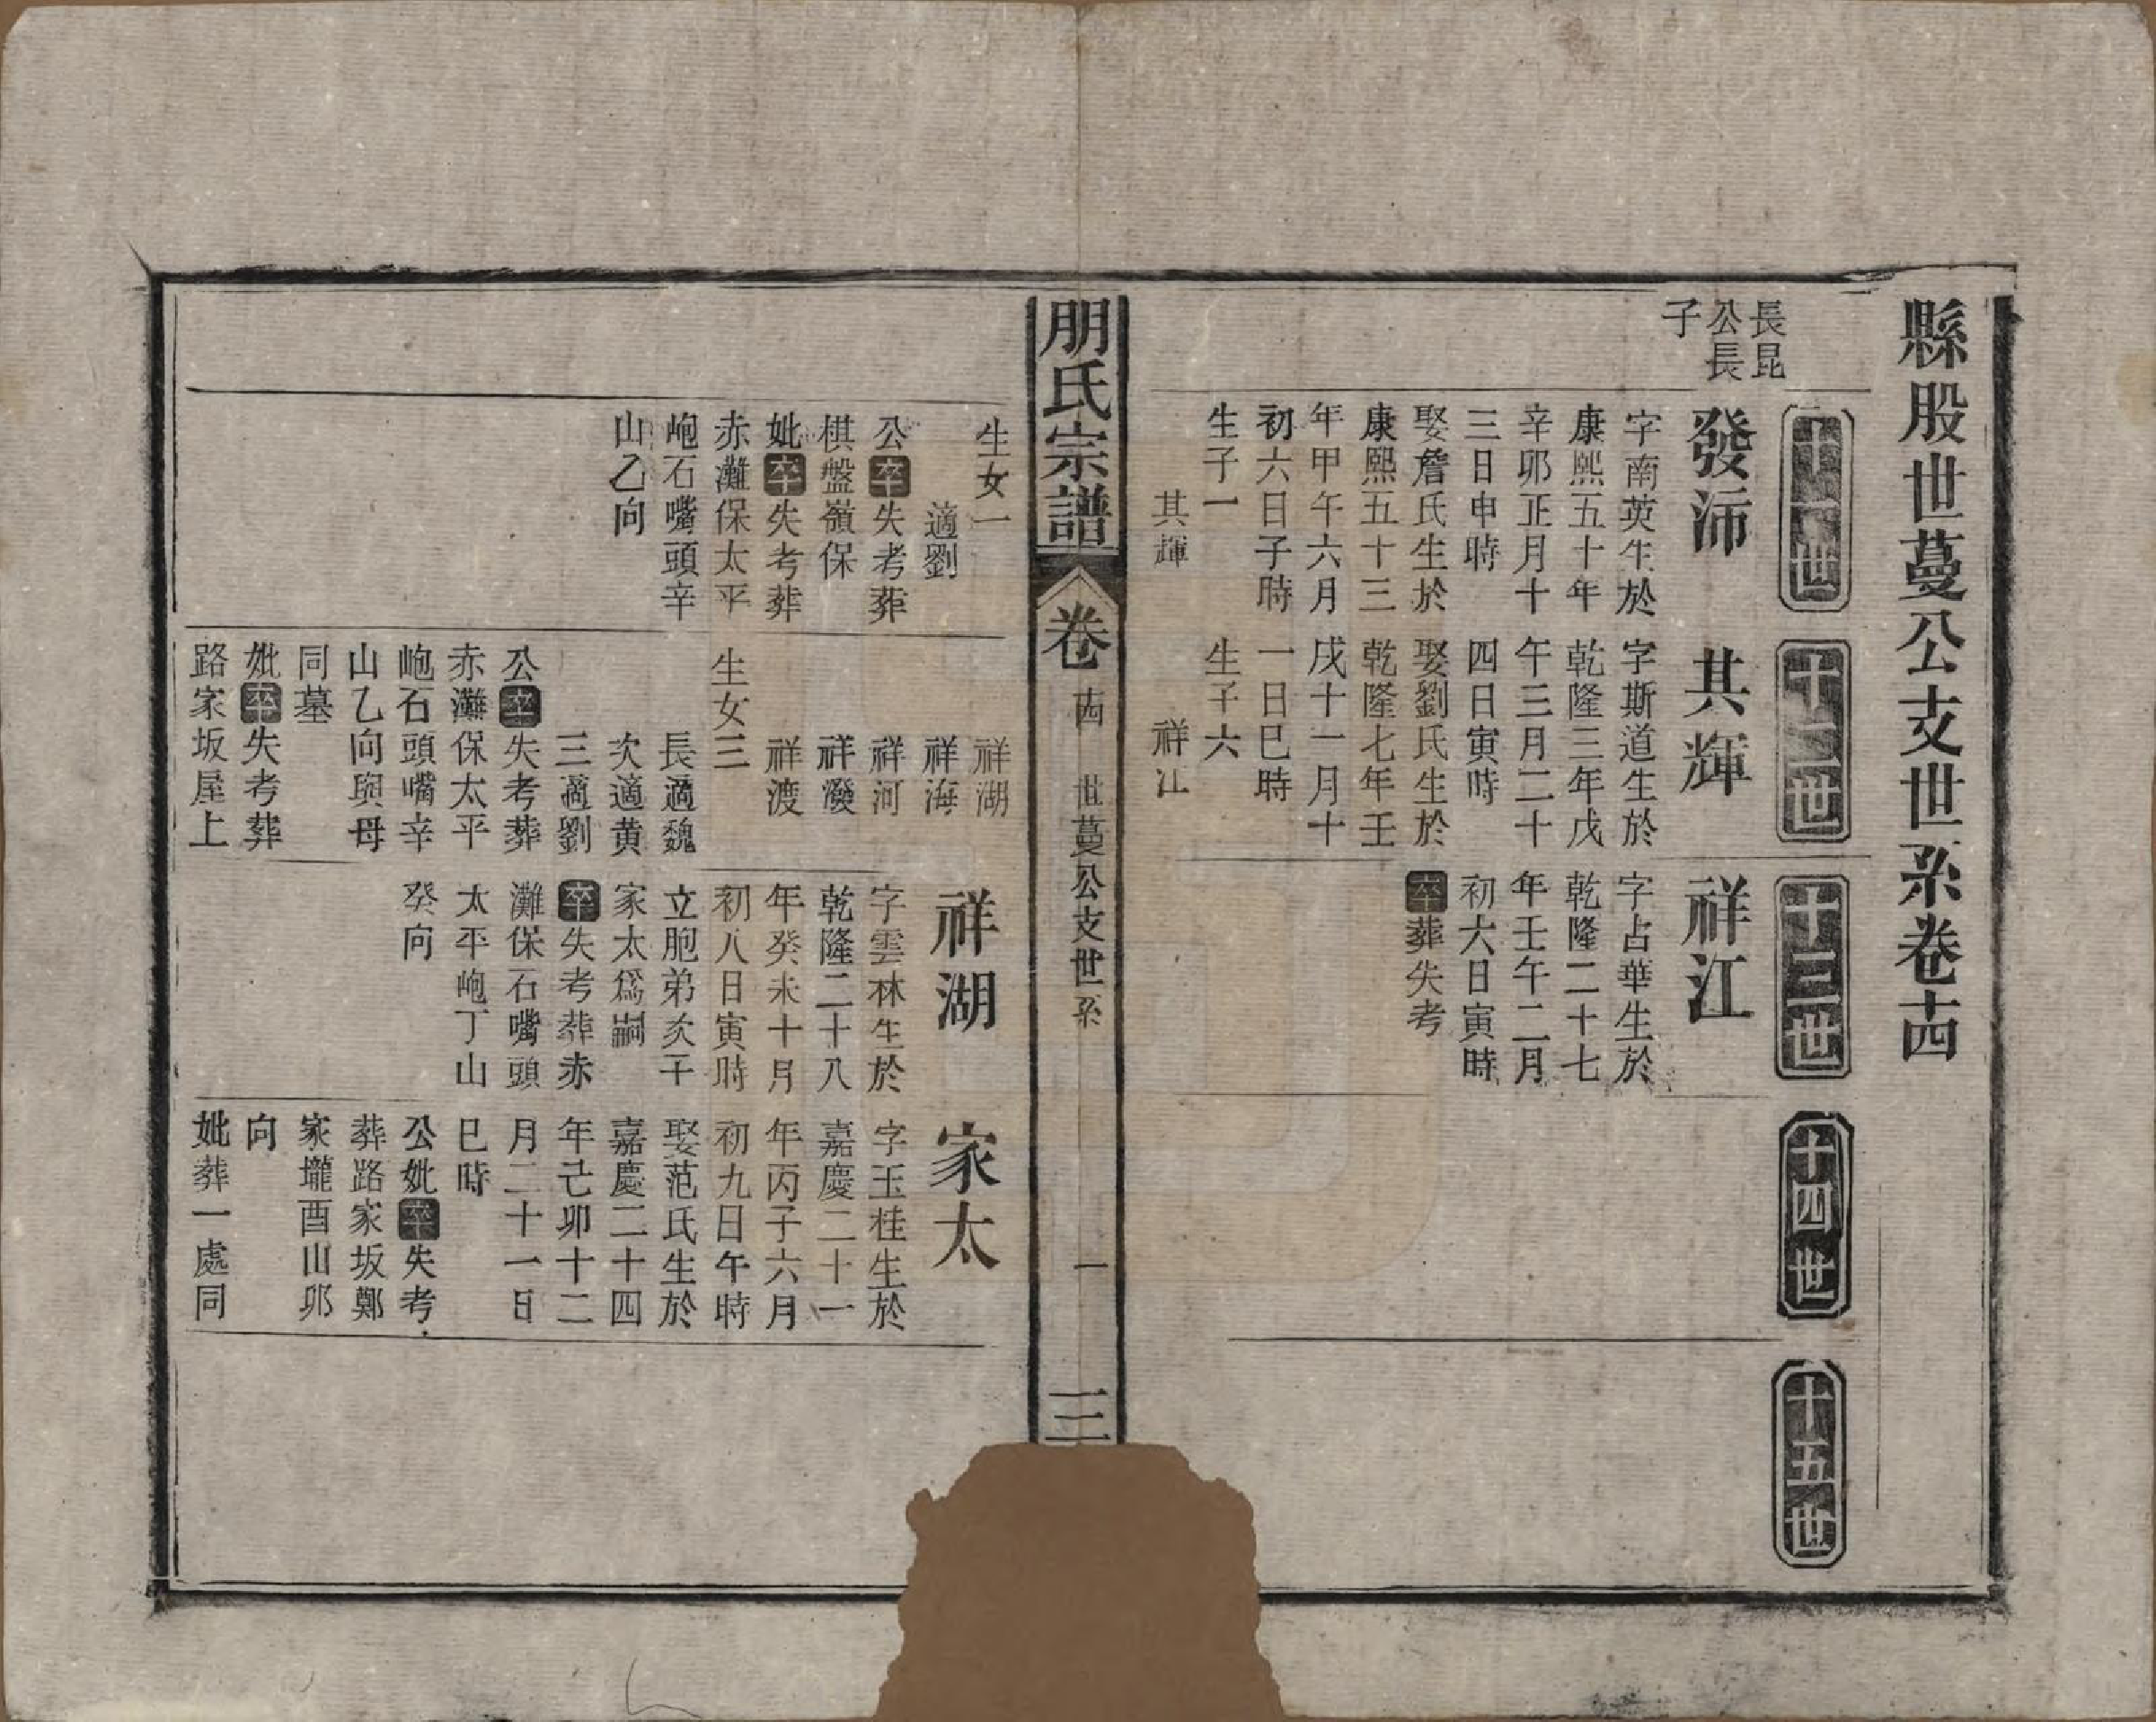 縣股世蔓公支世系卷十四
十一世
十二世
十三世
十四世
十五世
長昆
公長
子
發沛
字南英生於
康熙五十年
辛卯正月十
三日申時
娶詹氏生於
康熙五十三
年甲午六月
初六日子時
生子一
其輝
其輝
字斯道生於
乾隆三年戊
午三月二十
四日寅時
娶劉氏生於
乾隆七年壬
戌十一月十
一日巳時
生子六
祥江
祥江
字占華生於
乾隆二十七
年壬午二月
初六日寅時
卒葬失考
朋氏宗譜
卷
十四
世蔓公支世系
一
生女一
適劉
公卒失考葬
棋盤嶺保
妣卒失考葬
赤灘保太平
㘐石嘴頭辛
山乙向
祥湖
祥海
祥河
祥潑
祥渡
生女三
長適魏
次適黄
三適劉
公卒失考葬
赤灘保太平
㘐石頭嘴辛
山乙向與母
同墓
妣卒失考葬
路家坂屋上
祥湖
字雲林生於
乾隆二十八
年癸未十月
初八日寅時
立胞弟次子
家太爲嗣
卒失考葬赤
灘保石嘴頭
太平㘐丁山
癸向
家太
字玉桂生於
嘉慶二十一
年丙子六月
初九日午時
娶范氏生於
嘉慶二十四
年己卯十二
月二十一日
巳時
公妣卒失考
葬路家坂鄭
家壠酉山卯
向
妣葬一處同